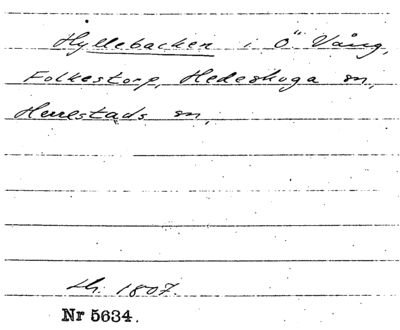 Hyllebacken i Ö Vång,
Folkestorp, Hedeskoga sn,
Herrestads sn,
Lh. 1807.
Nr 5634.